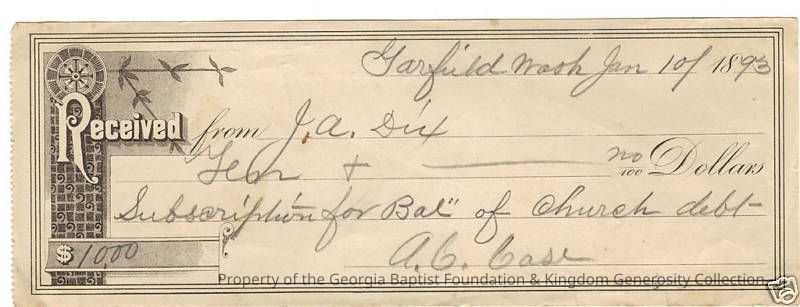 Garfield Wash Jan 10/ 1893
Received from J. A. Dix
Ten + no/100 Dollars
Subscription for Bal" of Church debt
$10.00
A. C. Case
Property of the Georgia Baptist Foundation & Kingdom Generosity Collection